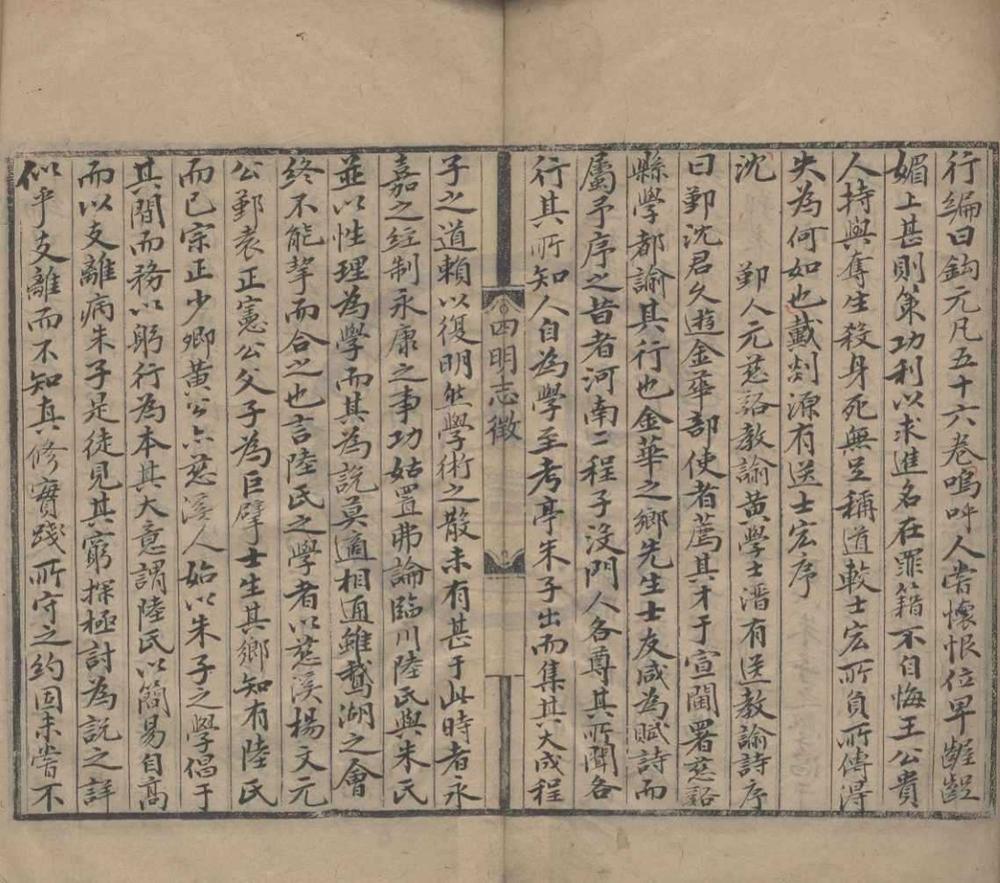 行編曰鈎元凡五十六卷嗚呼人嘗懷恨位卑齷齪
媚上甚則第功利以求進名在罪籍不自悔王公貴
人持與奪生殺身死無足稱道較士宏所負所傳得
失為何如也戴剡源有送士宏序
沈　　鄞人元慈谿教諭黃學士溍有送教諭詩序
曰鄞沈君久遊金華部使者薦其才于宣閫署慈谿
縣學都諭其行也金華之鄉先生士友咸為賦詩而
屬予序之昔者河南二程子沒門人各尊其所聞各
行其所知人自為學至考亭朱子出而集其大成程
四明志徵
子之道賴以復明然學術之散未有甚于此時者永
嘉之經制永康之事功姑置弗論臨川陸氏與朱氏
並以性理為學而其為說莫適相通雖鵝湖之會
終不能挈而合之也言陸氏之學者以慈溪楊文元
公鄞袁正憲公父子為巨擘士生其鄉知有陸氏
而已宗正少卿黃公亦慈溪人始以朱子之學倡于
其間而務以躬行為本其大意謂陸氏以簡易自高
而以支離病朱子是徒見其窮探極討為說之詳
似乎支離而不知真修實踐所守之約固未嘗不